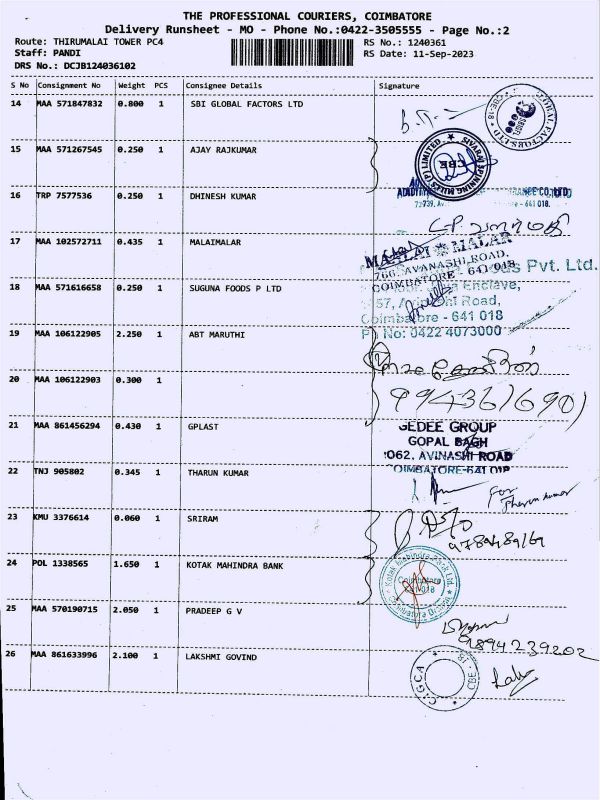 THE PROFESSIONAL COURIERS, COIMBATORE
Delivery Runsheet - MO - Phone No.:0422-3505555 - Page No.:2
Route: THIRUMALAI TOWER PC4 RS No.: 1240361
Staff: PANDI RS Date: 11-Sep-2023
DRS No.: DCJB124036102
S No Consignment No Weight PCS Consignee Details Signature
14 MAA 571847832 0.800 1 SBI GLOBAL FACTORS LTD
15 MAA 571267545 0.250 1 AJAY RAJKUMAR
SIVARAJ SPINNING MILLS (P) LIMITED
CBE
16 TRP 7577536 0.250 1 DHINESH KUMAR
641 018.
17 MAA 102572711 0.435 1 MALAIMALAR
MAALAI MALAR
766, AVANASHI ROAD,
COIMBATORE - 641 018
18 MAA 571616658 0.250 1 SUGUNA FOODS P LTD
Pvt. Ltd.
Enclave,
57, Avinashi Road,
Coimbatore - 641 018
No: 0422 4073000
19 MAA 106122905 2.250 1 ABT MARUTHI
20 MAA 106122903 0.300 1
21 MAA 861456294 0.430 1 GPLAST
GEDEE GROUP
GOPAL BAGH
1062, AVINASHI ROAD
COIMBATORE-641 018
22 TNJ 905802 0.345 1 THARUN KUMAR
For
Tharun kumar
23 KMU 3376614 0.060 1 SRIRAM
24 POL 1338565 1.650 1 KOTAK MAHINDRA BANK
Kotak Mahindra Bank Ltd.
Coimbatore
641 018
25 MAA 570190715 2.050 1 PRADEEP G V
9894239202
26 MAA 861633996 2.100 1 LAKSHMI GOVIND
CBE - 18